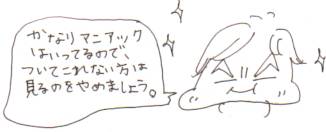 かなりマニアック
はいってるので、
ついてこれない方は
見るのをやめましょう。